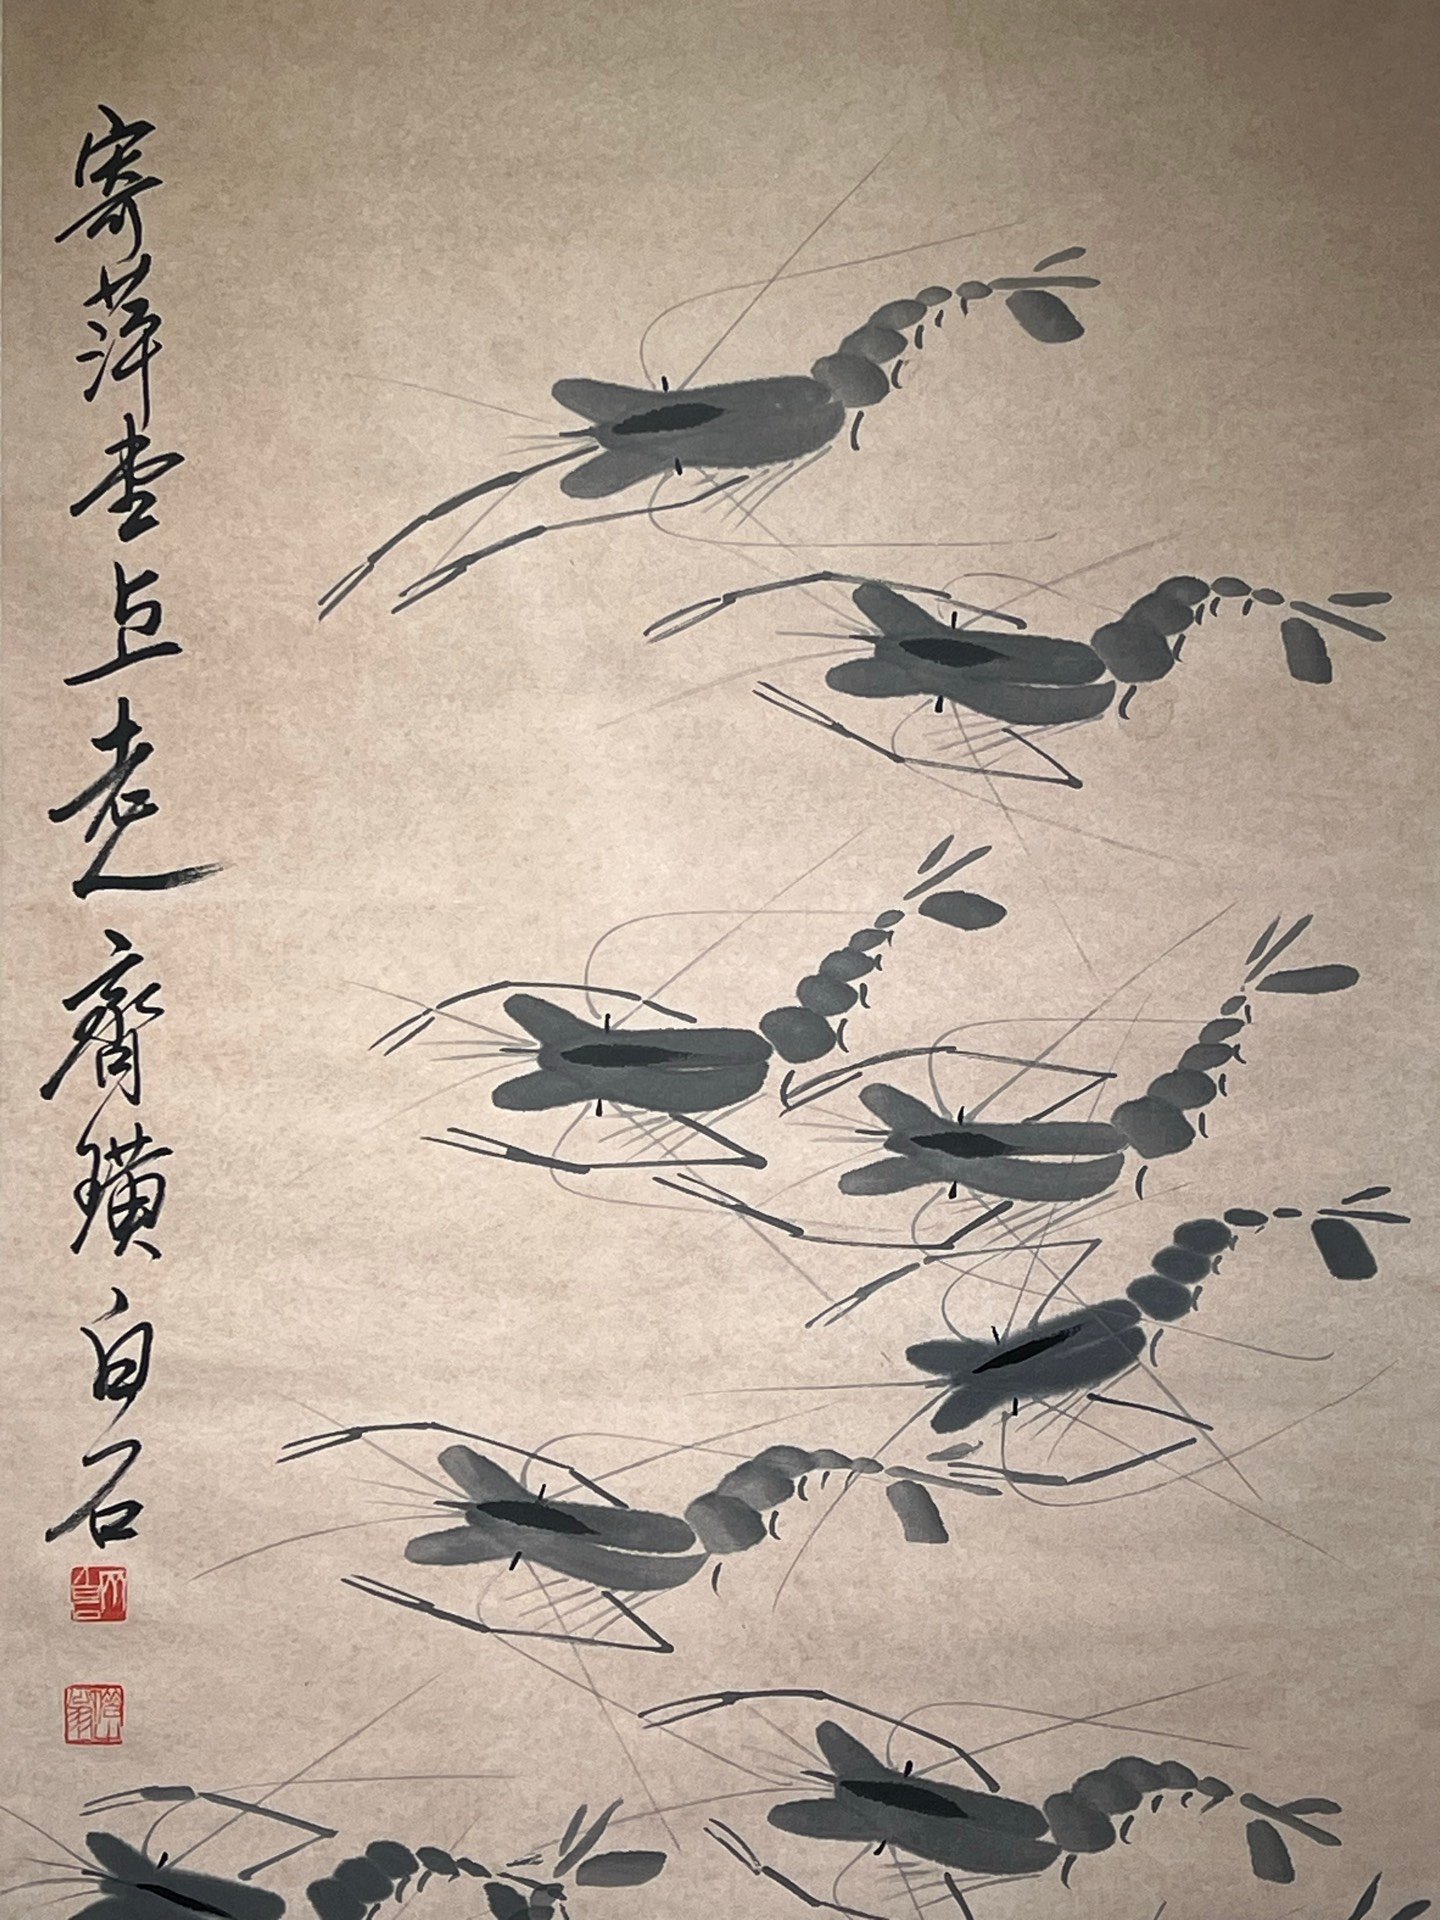 寄萍堂上老人齊璜白石